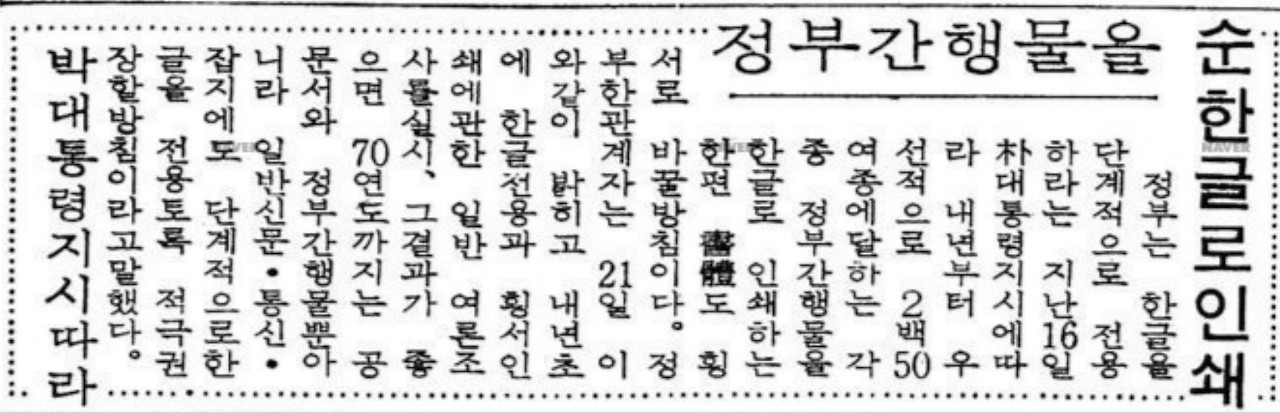 정부간행물을
순한글로인쇄
정부는 한글을
단계적으로 전용
하라는 지난16일
朴대통령지시에따
라 내년부터 우
선적으로 2백50
여종에달하는 각
종 정부간행물을
한글로 인쇄하는
한편 書體도 횡
서로 바꿀방침이다。 정
부한관계자는 21일 이
와같이 밝히고 내년초
에 한글전용과 횡서인
쇄에관한 일반 여론조
사를실시、그결과가 좋
으면 70연도까지는 공
문서와 정부간행물뿐아
니라 일반신문・통신・
잡지에도 단계적으로한
글을 전용토록 적극권
장할방침이라고말했다。
박대통령지시따라
NAVER